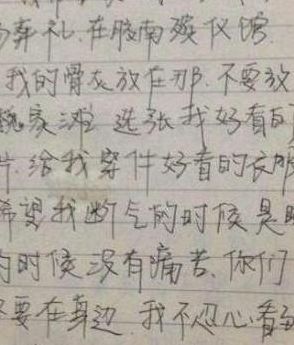 葬礼.在胶南殡仪馆.
我的骨灰放在那.不要放
魏家滩 选张我好看的
片.给我穿件好看的衣服
希望我断气的时候是
的时候没有痛苦.你们
要在身边.我不忍心看